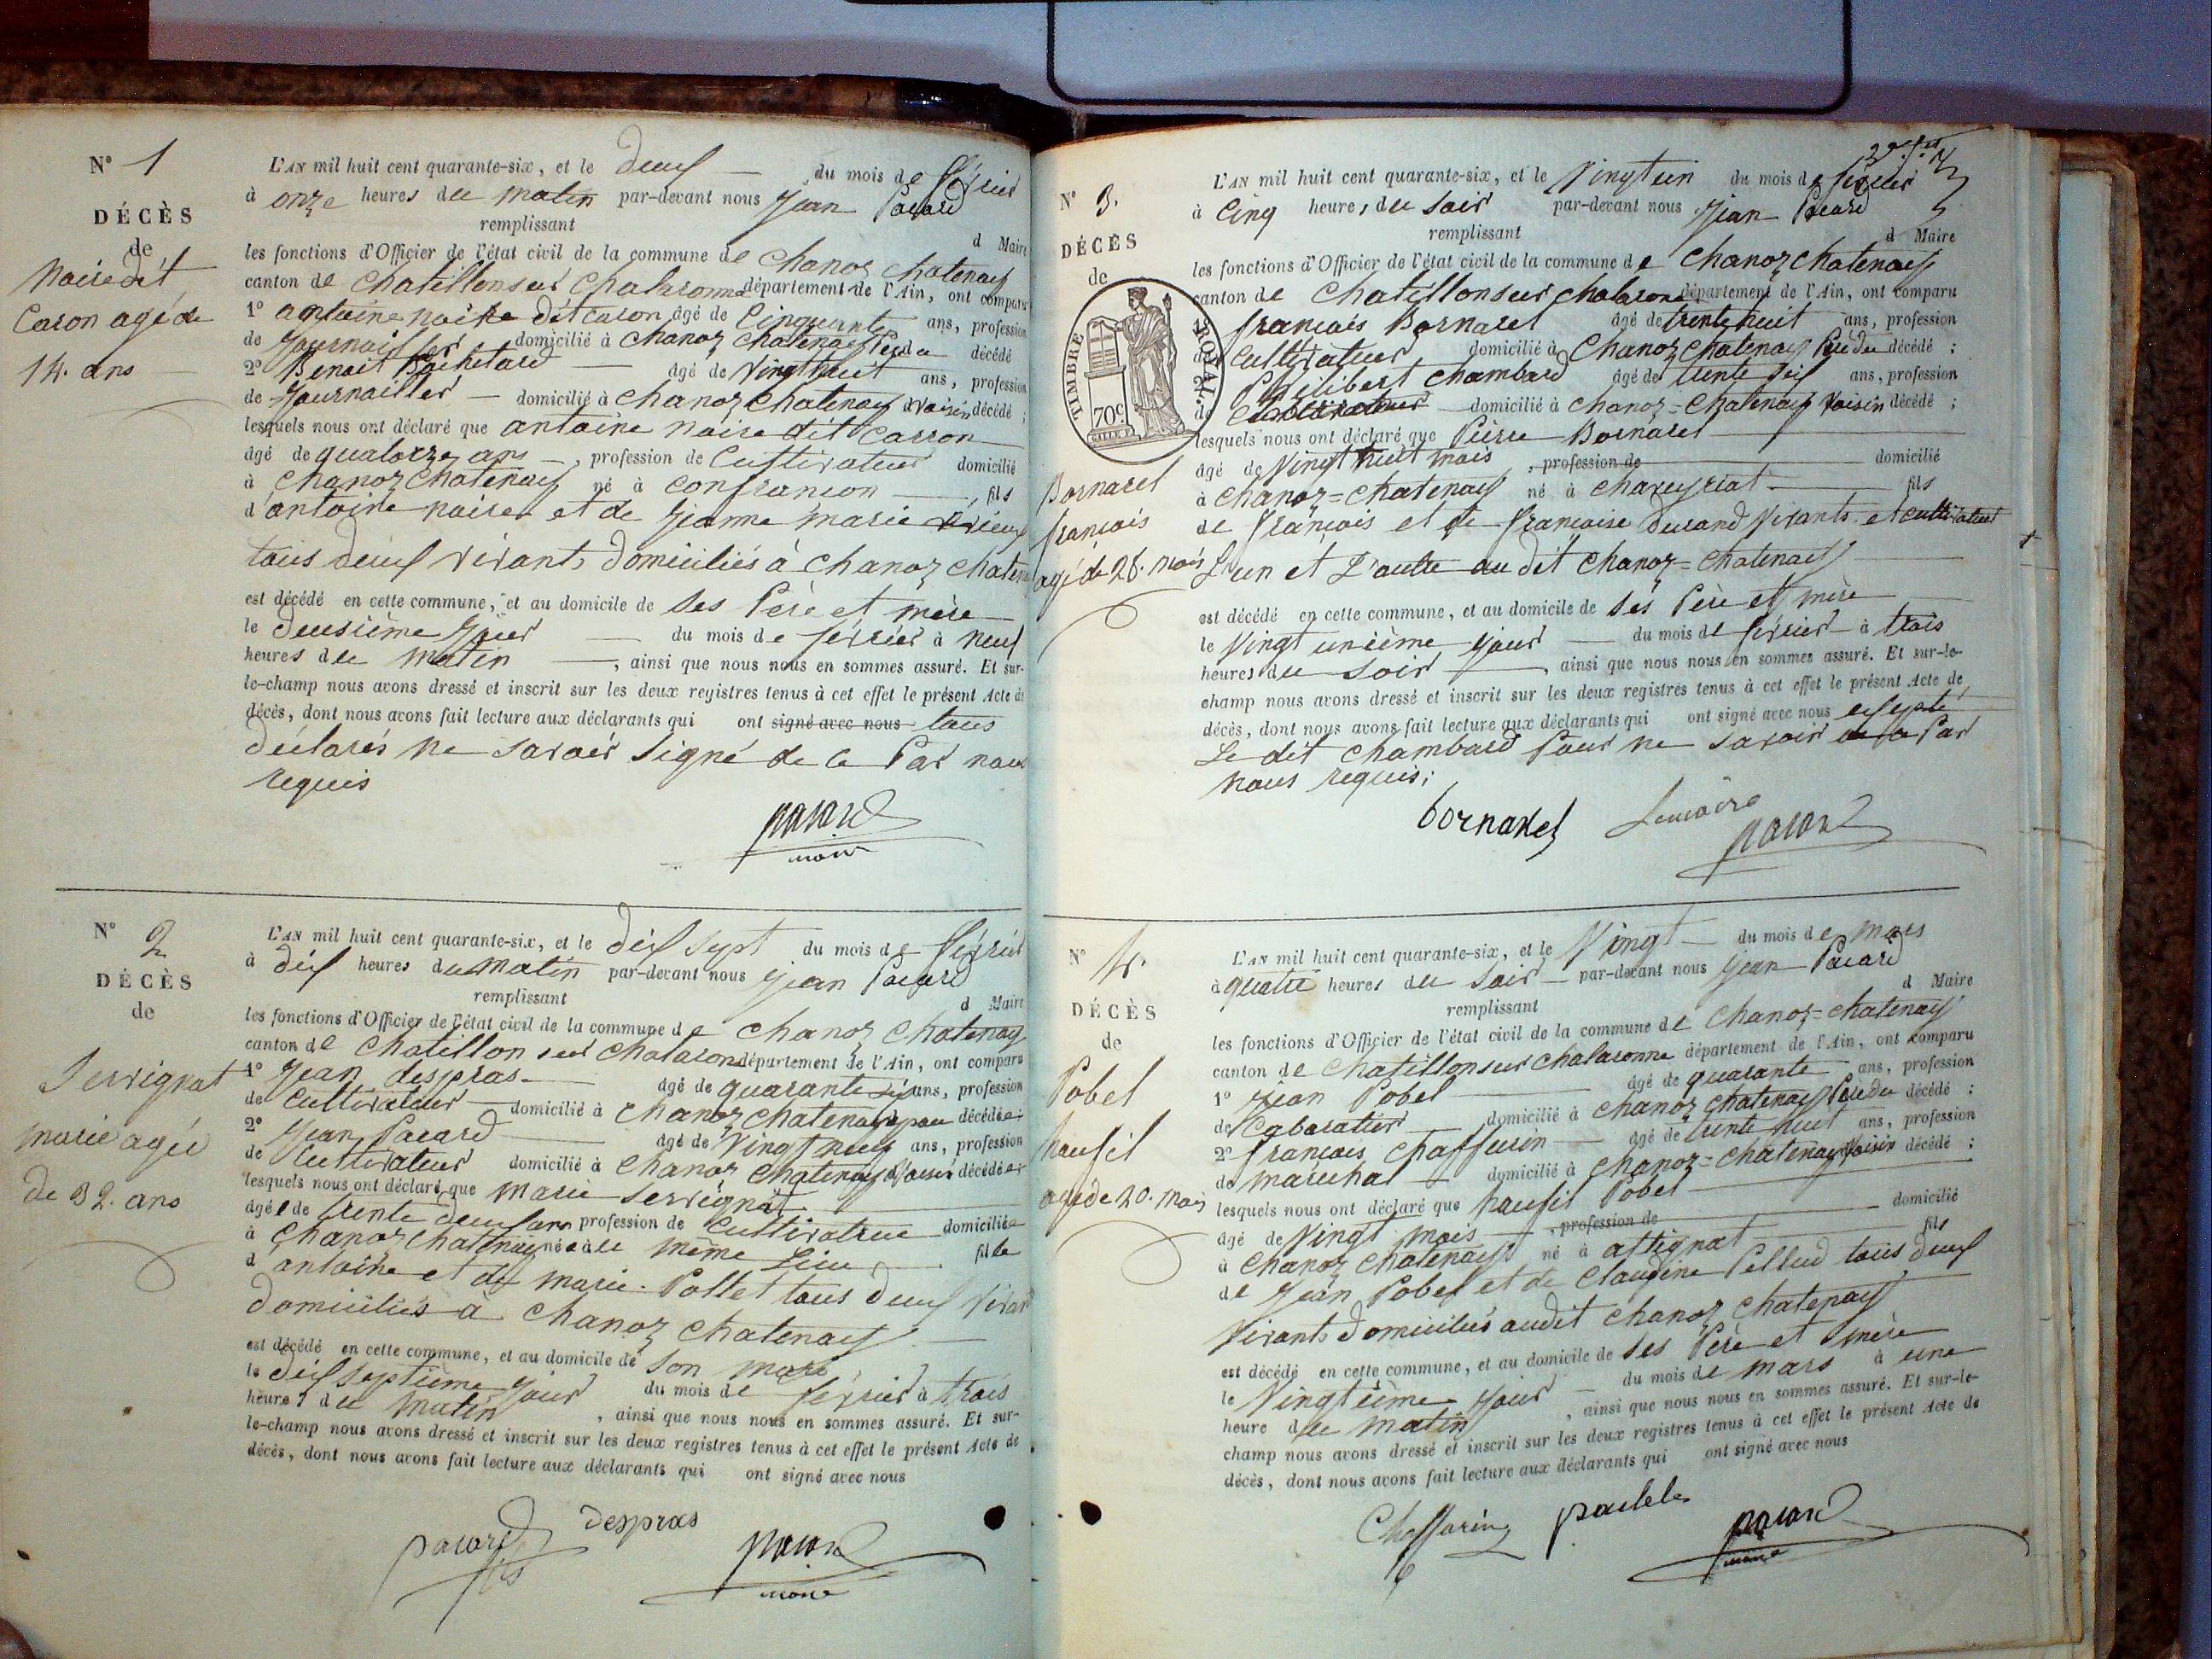 N° 1
DÉCÈS
de
Noire dit
Caron agé de
14. ans
L'AN mil huit cent quarante-six, et le deux du mois de février
à onze heures du matin par-devant nous Jean Pacard
remplissant d Maire
les fonctions d'Officier de l'état civil de la commune de Chanoz Chatenay
canton de Chatillon sur Chalaronne département de l'Ain, ont comparu
1° antoine noire dit caron âgé de Cinquante ans, profession
de Journailler domicilié à Chanoz Chatenay Père du décédé
2° Benoit Rochetard âgé de Vingt huit ans, profession
de Journailler domicilié à Chanoz Chatenay Voisin décédé ;
lesquels nous ont déclaré que antoine noire dit Carron
âgé de quatorze ans, profession de Cultivateur domicilié
à Chanoz Chatenay né à Confrançon, fils
d'antoine noire et de Jeanne marie
tous deux vivants domiciliés à Chanoz Chatenay
est décédé en cette commune, et au domicile de ses Père et mère
le deuxième jour du mois de février à neuf
heures du matin, ainsi que nous nous en sommes assuré. Et sur-
le-champ nous avons dressé et inscrit sur les deux registres tenus à cet effet le présent Acte de
décès, dont nous avons fait lecture aux déclarants qui ont signé avec nous tous
déclarés ne savoir signé de ce Par nous
requis
pacard
maire
N° 2
DÉCÈS
de
Servignat
marie agée
de 32. ans
L'AN mil huit cent quarante-six, et le dix sept du mois de février
à dix heures du matin par-devant nous Jean Pacard
remplissant d Maire
les fonctions d'Officier de l'état civil de la commune de Chanoz Chatenay
canton de Chatillon sur Chalaronne département de l'Ain, ont comparu
1° Jean despras âgé de quarante six ans, profession
de Cultivateur domicilié à Chanoz Chatenay époux décédée
2° Jean Pacard âgé de Vingt neuf ans, profession
de Cultivateur domicilié à Chanoz Chatenay Voisin décédée
lesquels nous ont déclaré que marie Servignat
âgée de trente deux ans profession de Cultivatrice domiciliée
à Chanoz Chatenay née à le même Lieu, fille
d'antoine et de marie Pollet tous deux vivants
domiciliés à Chanoz Chatenay
est décédé en cette commune, et au domicile de son mari
le dix septième jour du mois de février à trois
heures du matin, ainsi que nous nous en sommes assuré. Et sur-
le-champ nous avons dressé et inscrit sur les deux registres tenus à cet effet le présent Acte de
décès, dont nous avons fait lecture aux déclarants qui ont signé avec nous
pacard fils despras pacard
maire
N° 3.
DÉCÈS
de
TIMBRE ROYAL.
70c.
Bornarel
françois
agé de 28. mois
L'AN mil huit cent quarante-six, et le Vingt un du mois de février
à Cinq heures du Soir par-devant nous Jean Pacard
remplissant d Maire
les fonctions d'Officier de l'état civil de la commune de Chanoz Chatenay
canton de Chatillon sur Chalaronne département de l'Ain, ont comparu
françois Bornarel âgé de trente huit ans, profession
de Cultivateur domicilié à Chanoz Chatenay Père du décédé ;
2° Philibert Chambard âgé de trente six ans, profession
de Cultivateur domicilié à Chanoz=Chatenay Voisin décédé ;
lesquels nous ont déclaré que Pierre Bornarel
âgé de Vingt huit mois, profession de domicilié
à Chanoz=Chatenay né à Chaveyriat fils
de François et de françoise Durand Vivants et Cultivateurs
L'un et L'autre au dit Chanoz=Chatenay
est décédé en cette commune, et au domicile de ses Père et mère
le Vingt unième jour du mois de février à trois
heures du Soir, ainsi que nous nous en sommes assuré. Et sur-le-
champ nous avons dressé et inscrit sur les deux registres tenus à cet effet le présent Acte de
décès, dont nous avons fait lecture aux déclarants qui ont signé avec nous excepté
Le dit Chambard Pour ne Savoir de ce Par
nous requis;
bornarel Le maire
pacard
N° 4.
DÉCÈS
de
Pobel
agé de 20. mois
L'AN mil huit cent quarante-six, et le Vingt du mois de mars
à quatre heures du Soir par-devant nous Jean Pacard
remplissant d Maire
les fonctions d'Officier de l'état civil de la commune de Chanoz=Chatenay
canton de Chatillon sur Chalaronne département de l'Ain, ont comparu
1° Jean Pobel âgé de quarante ans, profession
de Cabaratier domicilié à Chanoz Chatenay Père du décédé ;
2° françois Chaffurin âgé de trente huit ans, profession
de maréchal domicilié à Chanoz=Chatenay Voisin décédé ;
lesquels nous ont déclaré que Pobel
âgé de Vingt mois, profession de domicilié
à Chanoz Chatenay né à attignat fils
de Jean Pobel et de Claudine tous deux
vivants domiciliés audit Chanoz Chatenay
est décédé en cette commune, et au domicile de ses Père et mère
le Vingtième jour du mois de mars à une
heure du matin, ainsi que nous nous en sommes assuré. Et sur-le-
champ nous avons dressé et inscrit sur les deux registres tenus à cet effet le présent Acte de
décès, dont nous avons fait lecture aux déclarants qui ont signé avec nous
Chaffarin pacard
maire